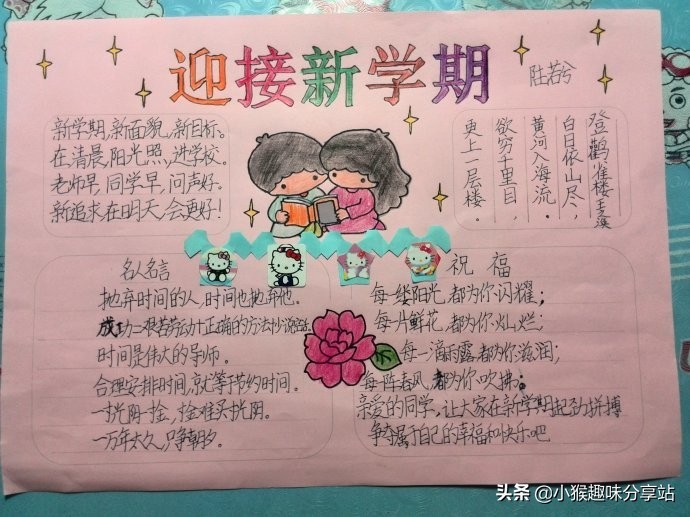 迎接新学期
陆若兮
新学期,新面貌,新目标。
在清晨,阳光照,进学校。
老师早,同学早,问声好。
新追求,在明天,会更好!
登鹳雀楼 王之涣
白日依山尽,
黄河入海流。
欲穷千里目,
更上一层楼。
名人名言
抛弃时间的人,时间也抛弃他。
成功=艰苦劳动+正确的方法+少说空话
时间是伟大的导师。
合理安排时间,就等于节约时间。
一寸光阴一寸金,寸金难买寸光阴。
一万年太久,只争朝夕。
祝福
每一缕阳光,都为你闪耀;
每一片鲜花,都为你灿烂;
每一滴雨露,都为你滋润;
每一阵春风,都为你吹拂。
亲爱的同学,让大家在新学期起努力拼搏
争夺属于自己的幸福和快乐吧
头条 @小猴趣味分享站